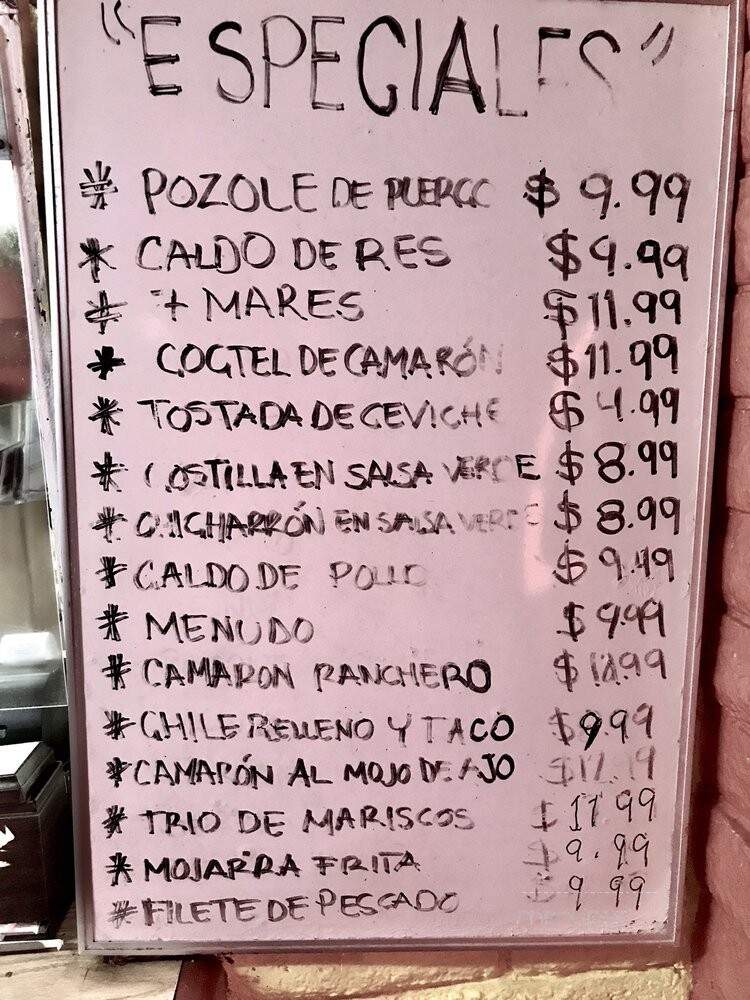 "ESPECIALES"
* POZOLE DE PUERCO $ 9.99
* CALDO DE RES $9.99
* 7 MARES $11.99
* COCTEL DE CAMARÓN $11.99
* TOSTADA DE CEVICHE $4.99
* COSTILLA EN SALSA VERDE $8.99
* CHICHARRÓN EN SALSA VERDE $8.99
* CALDO DE POLLO $9.99
* MENUDO $9.99
* CAMARON RANCHERO
* CHILE RELLENO Y TACO $9.99
* CAMARÓN AL MOJO DE AJO
* TRIO DE MARISCOS $ 11 99
* MOJARRA FRITA $ 9.99
* FILETE DE PESCADO $ 9 99